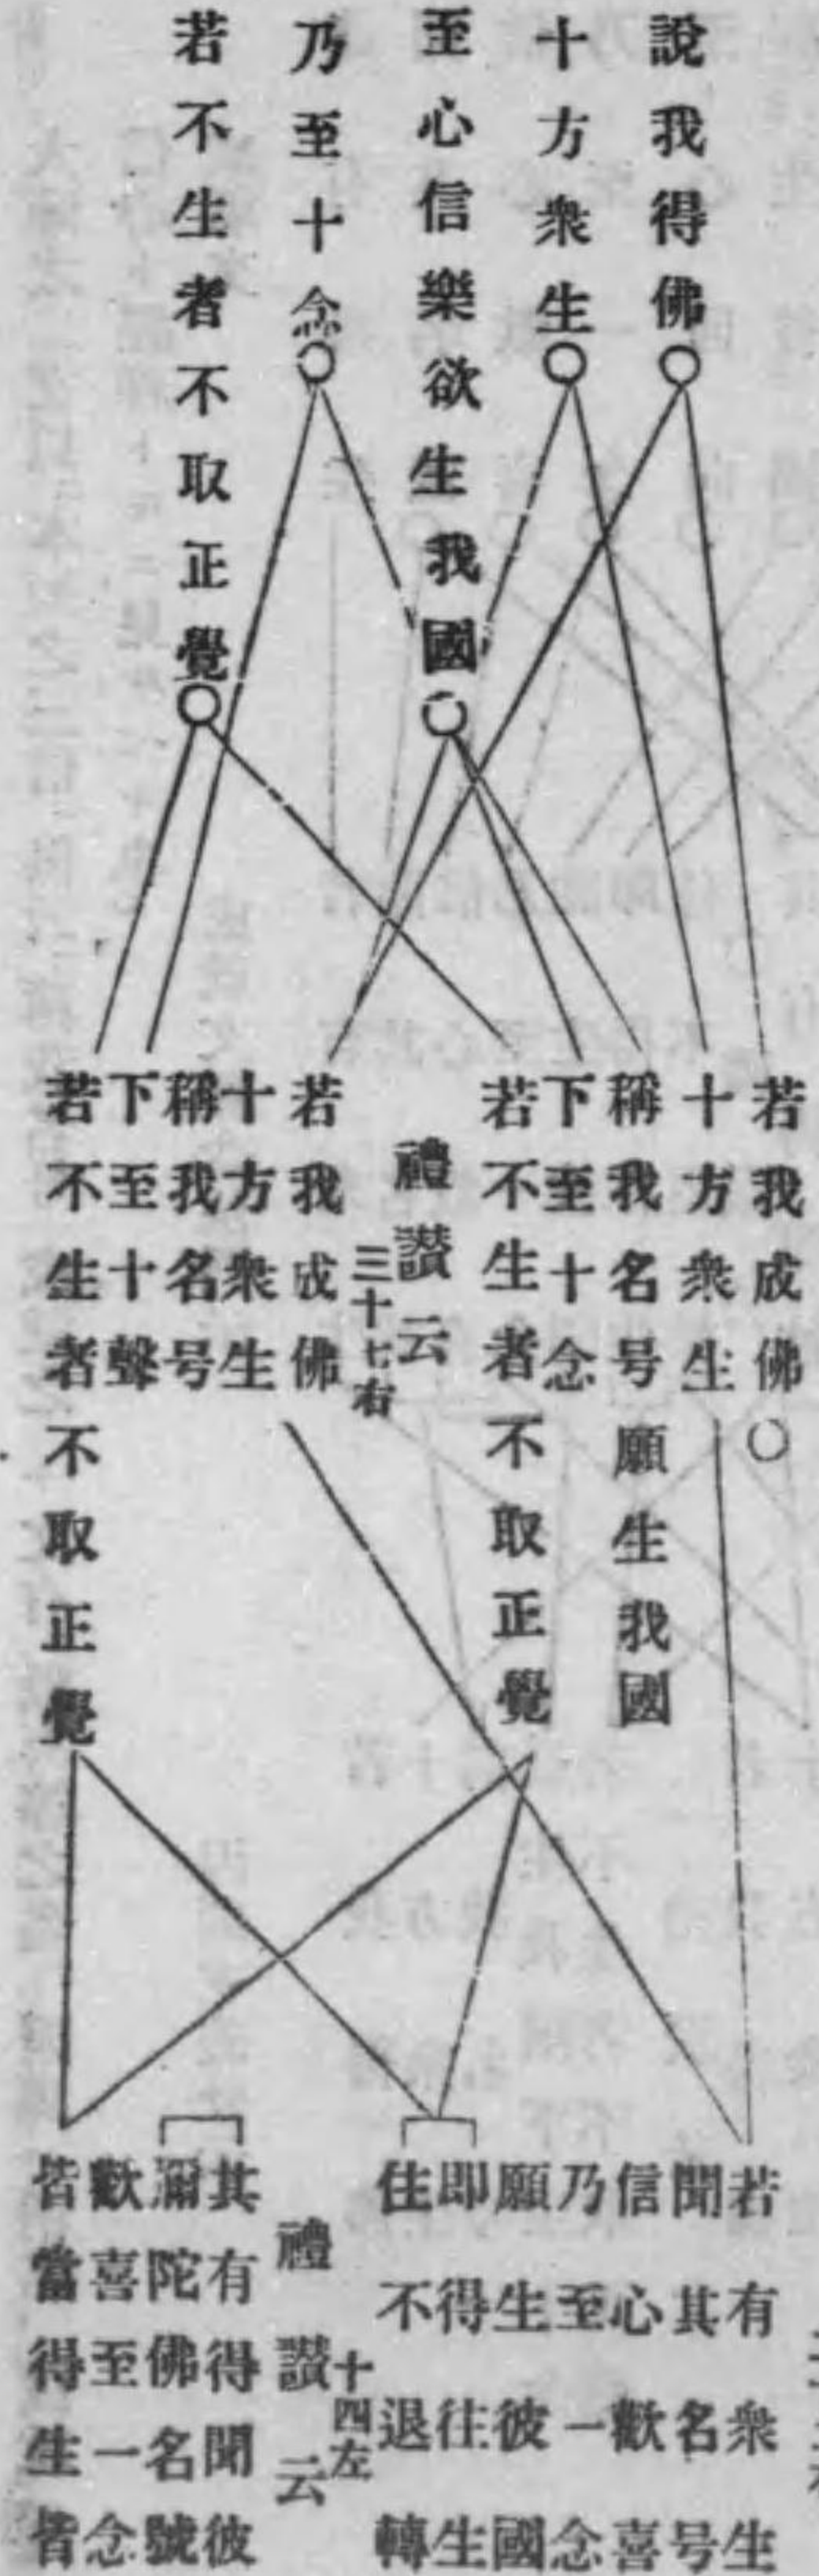 說我得佛
十方衆生
至心信樂欲生我國
乃至十念
若不生者不取正覺
若我成佛
十方衆生
稱我名号願生我國
下至十念
若不生者不取正覺
禮讃云
三十七右
若我成佛
十方衆生
稱我名号
下至十聲
若不生者不取正覺
若有衆生
聞其名号
信心歡喜
乃至一念
願生彼國
即得往生
住不退轉
禮讃云
十四左
其有得聞彼
彌陀佛名號
歡喜至一念
皆當得生